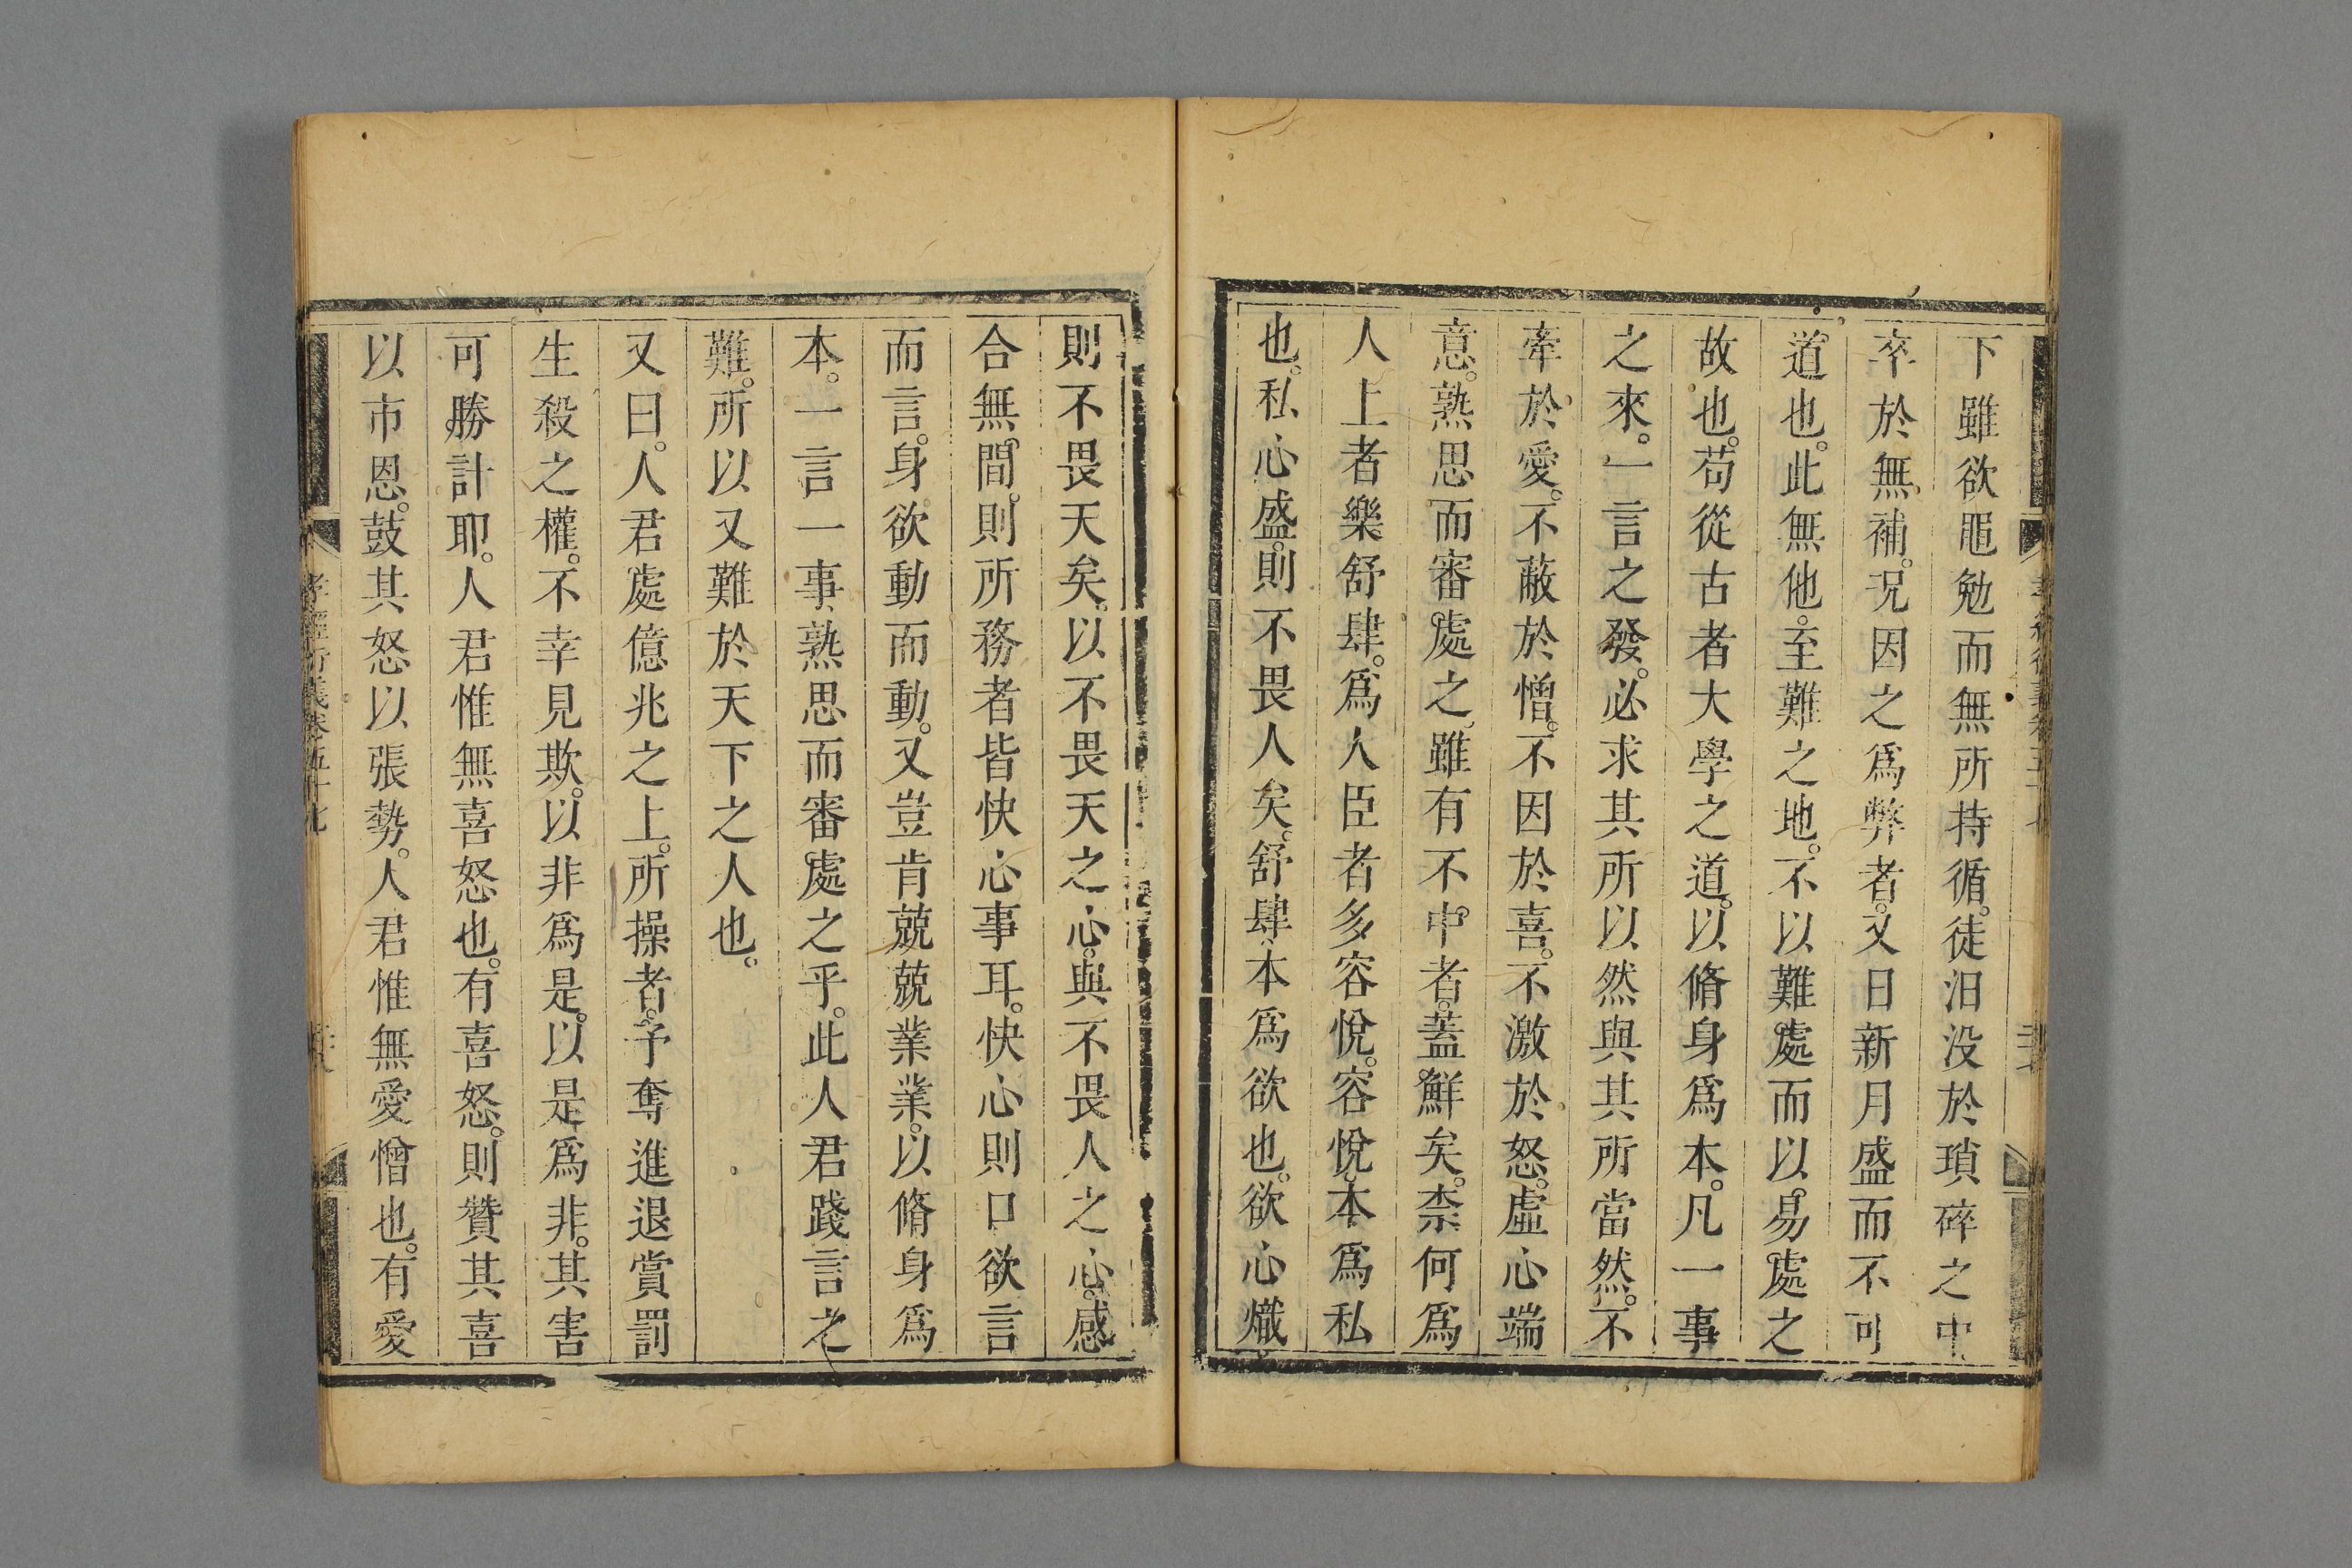 下雖欲黽勉而無所持循。徒汨没於瑣碎之中
卒於無補。况因之爲弊者。又日新月盛而不可
道也。此無他。至難之地。不以難處而以易處之
故也。苟從古者大學之道。以脩身爲本。凡一事
之來。一言之發。必求其所以然與其所當然。不
牽於愛。不蔽於憎。不因於喜。不激於怒。虛心端
意。熟思而審處之。雖有不中者。蓋鮮矣。柰何爲
人上者樂舒肆。爲人臣者多容悅。容悅本爲私
也。私心盛。則不畏人矣。舒肆本爲欲也。欲心熾
則不畏天矣。以不畏天之心。與不畏人之心。感
合無間。則所務者皆快心事耳。快心則口欲言
而言。身欲動而動。又豈肯兢兢業業。以脩身爲
本。一言一事熟思而審處之乎。此人君踐言之
難。所以又難於天下之人也。
又曰。人君處億兆之上。所操者。予奪進退賞罰
生殺之權。不幸見欺。以非爲是。以是爲非。其害
可勝計耶。人君惟無喜怒也。有喜怒。則贊其喜
以市恩。鼓其怒以張勢。人君惟無愛憎也。有愛